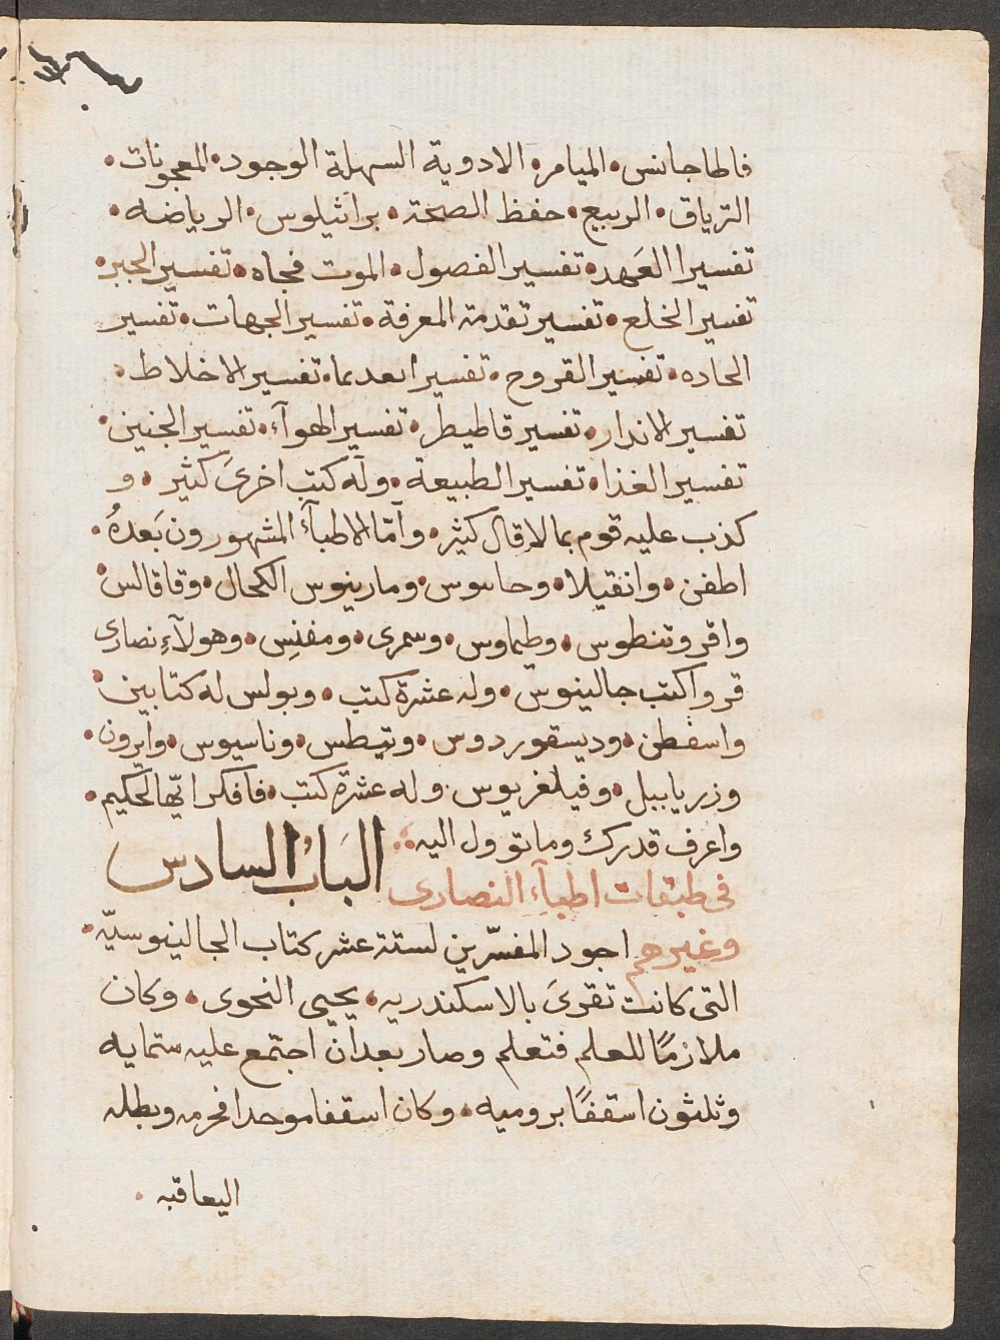 فاطاجانس • الميامر • الادوية السهلة الوجود • المعجونات •
الترياق • الربيع • حفظ الصحة • براثيلوس • الرياضه •
تفسيرا العَهد • تفسير الفصول • الموت فجاه • تفسير الجبر •
تفسير الخلع • تفسير تقدمة المعرفة • تفسير الجهات • تفسير
الحاده • تفسير القروح • تفسير ابعديما • تفسير الاخلاط •
تفسير الاندار • تفسير قاطيطر • تفسير الهوآء • تفسير الجنين •
تفسير الغذا • تفسير الطبيعة • وله كتب اخرىَ كثير • و
كذب عليه قوم بما لا قال كثير • وآمّا الاطبآء المشهورون بَعدهُ •
اطفن • وانقيلا • وحاسوس • ومارينوس الكحال • وقاقالس •
واقروتنطوس • وطيماوس • وسمرى • ومفنِس • وهولآءِ نصارى
قروا كتب جالينوس • وله عشرة كتب • وبولس له كتابين •
واسفطن • وديسقوردوس • وتيطس • وناسيوس • وآيرون •
وزريابيل • وفيلغريوس • وله عشرة كتب • فافكر ايّها الحكيم •
واعرف قدرك وما تؤول اليه •
البَابُ السادس
فى طبقات اطبآءِ النصارى
وغيرهم اجود المفسّرين لستة عشر كتاب الجالينوسيّه •
التى كانت تقرىَ بالاسكندريه • يحيى النحوى • وكان
ملازمًا للعلم فتعلم وصار بعد ان اجتمع عليه ستمايه
وثلثون اسقفًا بروميه • وكان اسقفا موحدا فحرمه وبطله
اليعاقبه •